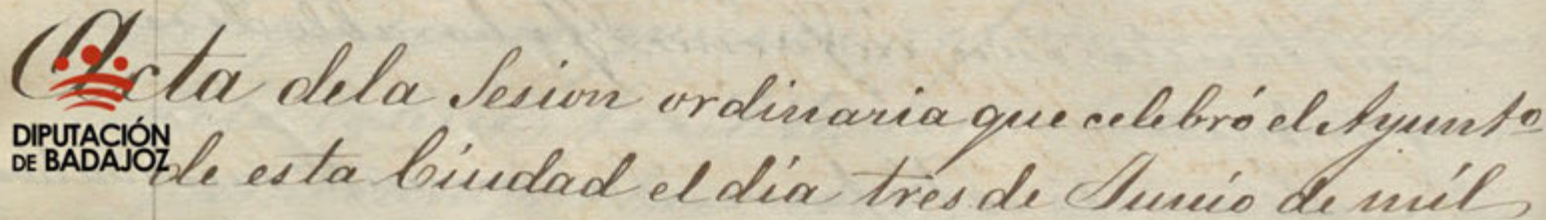 Acta dela Sesion ordinaria que celebró el Ayuntº
DIPUTACIÓN
DE BADAJOZ
de esta Ciudad el día tres de Junio de mil